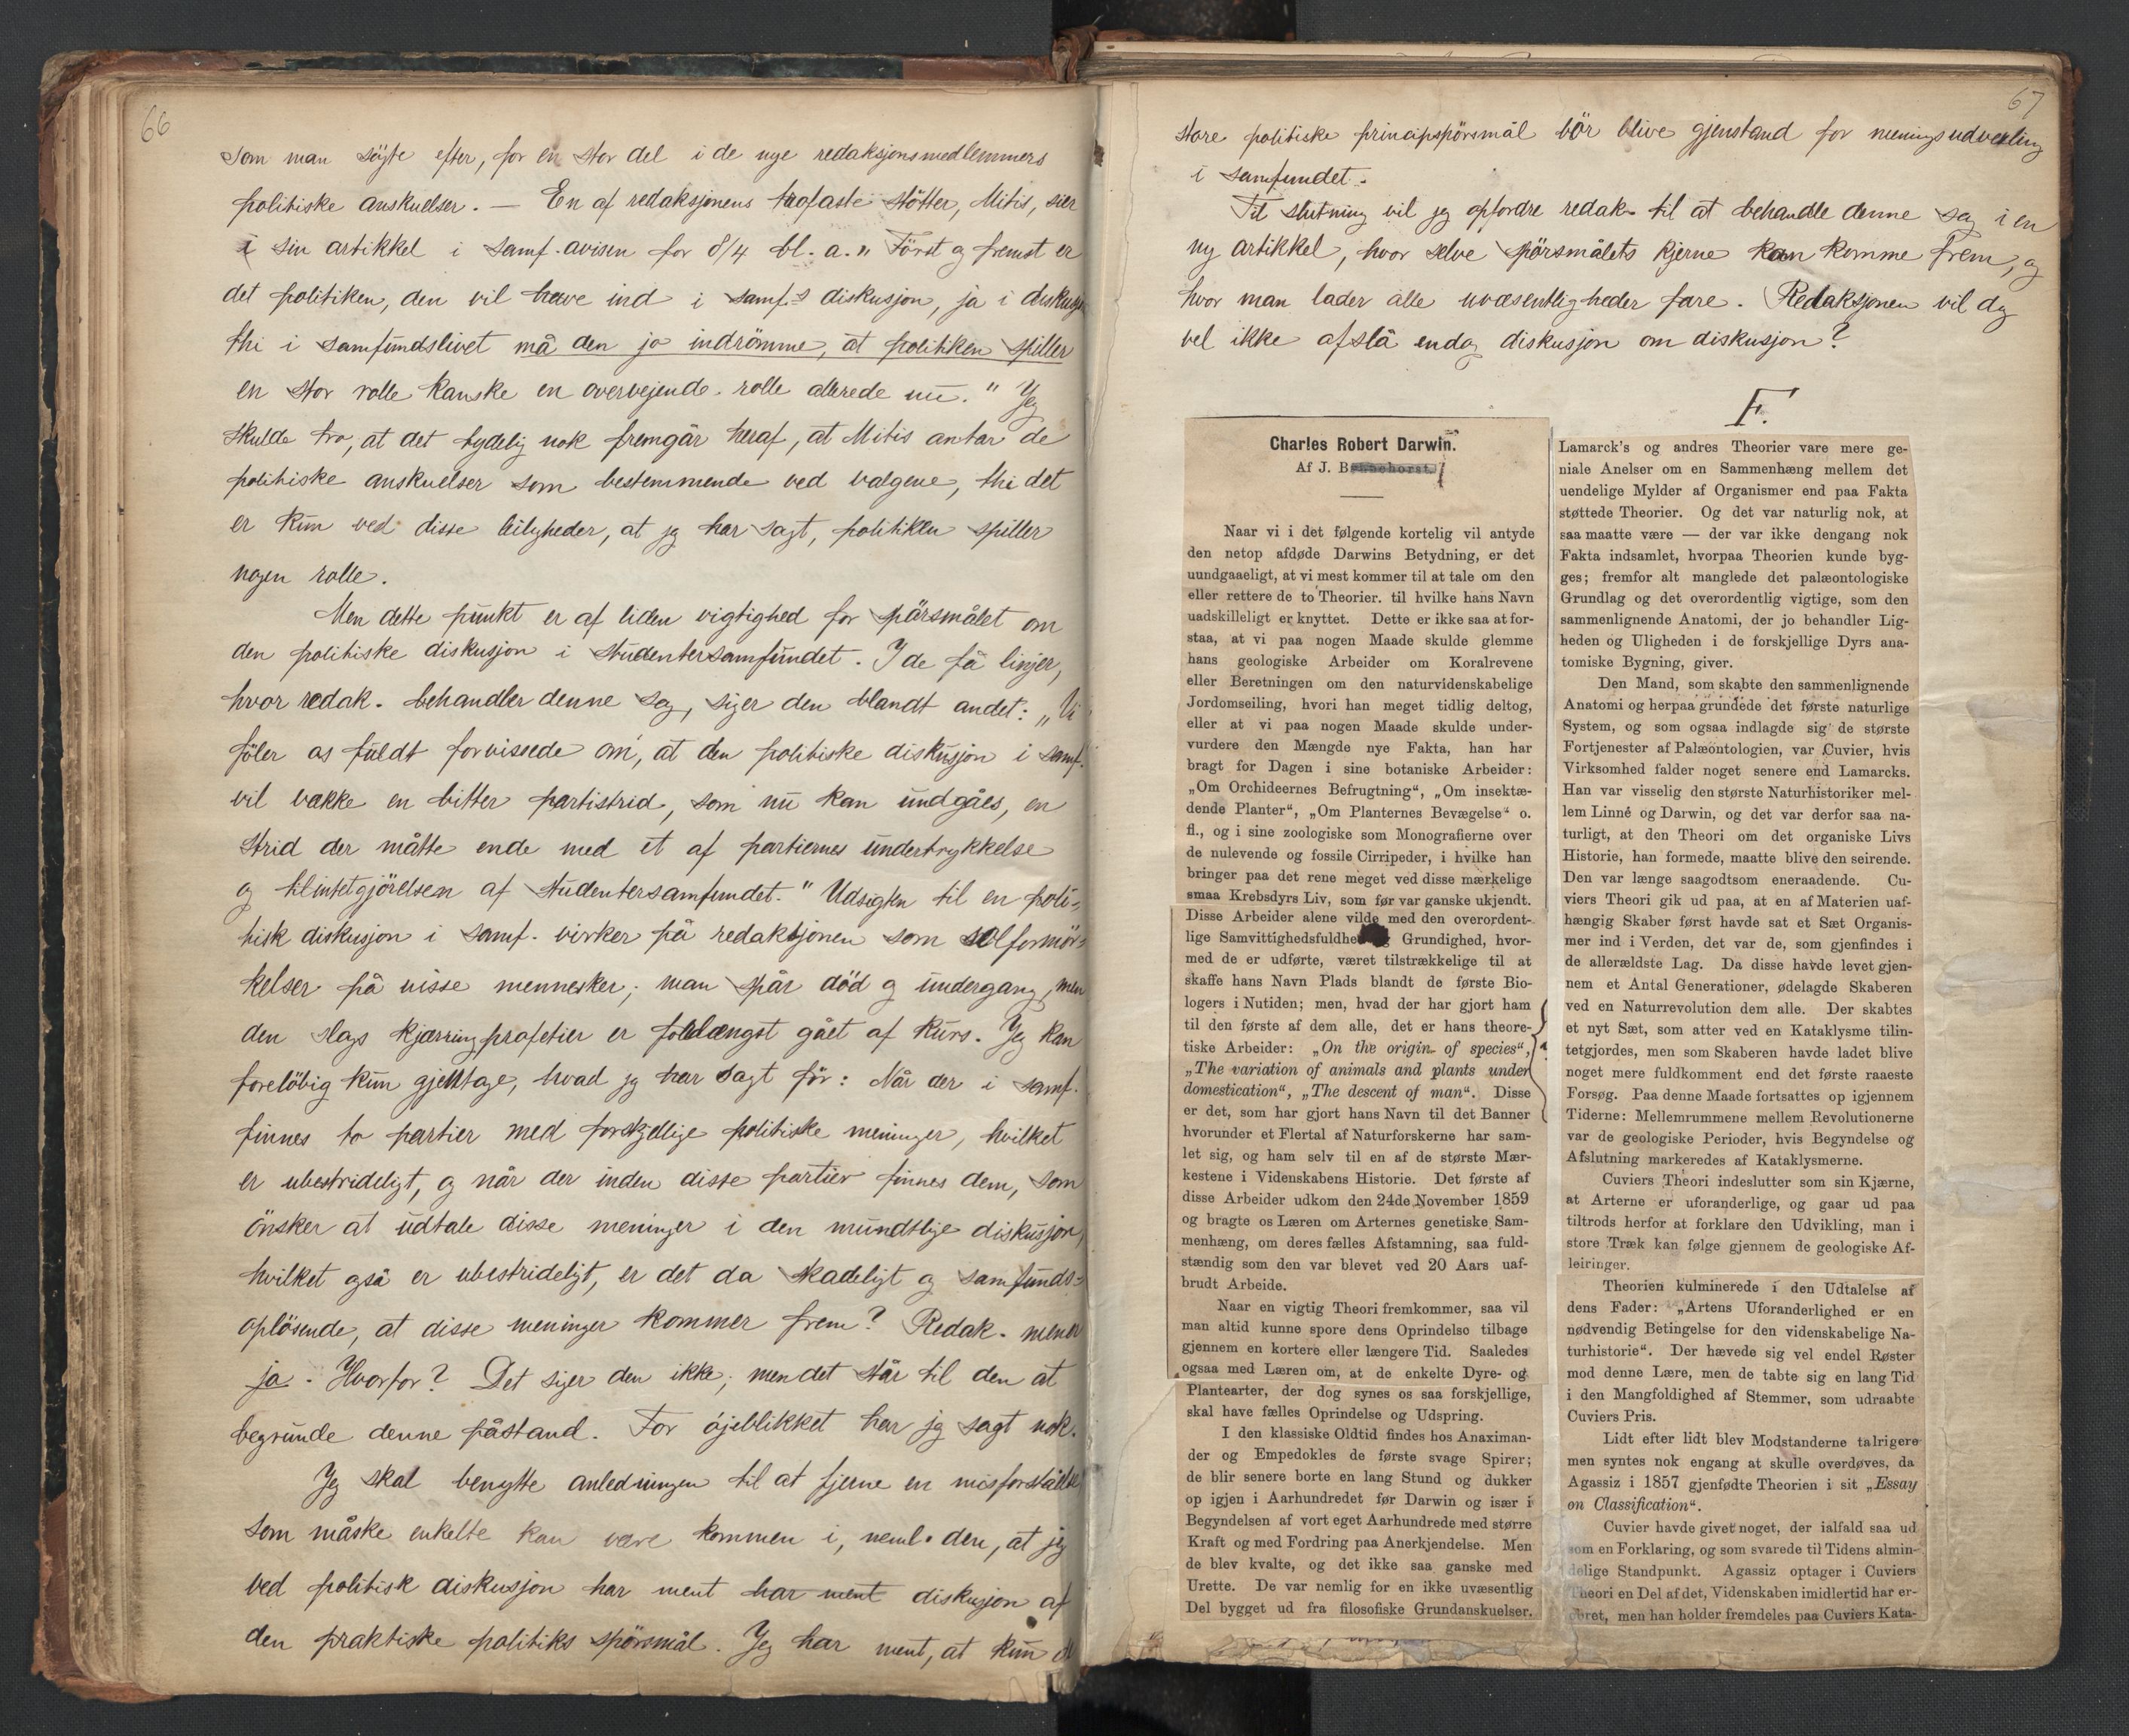 66
som man søgte efter, for en stor del i de nye redaksjonsmedlemmers
politiske anskuelser. — En af redaksjonens trofaste støtter, Mitis, sier
i sin artikkel i samf. avisen for 8/4 bl. a. „Først og fremst er
det politiken, den vil have ind i samf.s diskusjon, ja i
thi i samfundslivet må den jo indrömme, at politiken spiller
en stor rolle kanske en overvejende rolle allerede nu." Jeg
skulde tro, at det tydelig nok fremgår heraf, at Mitis antar de
politiske anskuelser som bestemmende ved valgene, thi det
er kun ved disse leiligheder, at jeg har sagt, politikken spiller
nogen rolle.
Men dette punkt er af liden vigtighed for spörsmålet om
den politiske diskusjon i studentersamfundet. I de få linjer,
hvor redak. behandler denne sag, siger den blandt andet: „Vi
föler os fuldt forvissede om, at den politiske diskusjon i samf.
vil vække en bitter partistrid, som nu kan undgåes, en
strid der måtte ende med et af partiernes undertrykkelse
og tilintetgjörelsen af studentersamfundet." Udsigten til en poli-
tisk diskusjon i samf. virker på redaktjonen som solformör-
kelser på visse mennesker; man spår död og undergang, men
den slags kjærringprofetier er forlængst gået af kurs. Jeg kan
forelöbig kun gjenntage, hvad jeg har sagt för: Når der i samf.
finnes to partier med forskjellige politiske meninger, hvilket
er ubestrideligt, og når der inden disse partier finnes dem, som
önsker at udtale disse meninger i den mundtlige diskusjon,
hvilket også er ubestrideligt, er det da skadeligt og samfunds-
oplösende, at disse meninger kommer frem? Redak. mener
ja. Hvorfor? Det siger den ikke; men det står til den at
begrunde denne påstand. For öjeblikket har jeg sagt nok.
Jeg skal benytte anledningen til at fjerne en misforståelse
som måske enkelte kan være kommen i, neml. den, at jeg
ved politisk diskusjon har ment har ment diskusjon af
den praktiske politiks spörsmål. Jeg har ment, at kun
67
store politiske principspörsmål bör blive gjenstand for meningsudveksling
i samfundet.
Til slutning vil jeg opfordre redak. til at behandle denne sag i en
ny artikkel, hvor selve spörsmålets kjerne kan komme frem, og
hvor man lader alle uvæsentligheder fare. Redaktjonen vil dog
vel ikke afslå endog diskusjon om diskusjon?
F.
Charles Robert Darwin.
Af J. B
Naar vi i det følgende kortelig vil antyde
den netop afdøde Darwins Betydning, er det
uundgaaeligt, at vi mest kommer til at tale om den
eller rettere de to Theorier. til hvilke hans Navn
uadskilleligt er knyttet. Dette er ikke saa at for-
staa, at vi paa nogen Maade skulde glemme
hans geologiske Arbeider om Koralrevene
eller Beretningen om den naturvidenskabelige
Jordomseiling, hvori han meget tidlig deltog,
eller at vi paa nogen Maade skulde under-
vurdere den Mængde nye Fakta, han har
bragt for Dagen i sine botaniske Arbeider:
„Om Orchideernes Befrugtning“, „Om insektæ-
dende Planter“, „Om Planternes Bevægelse“ o.
fl., og i sine zoologiske som Monografierne over
de nulevende og fossile Cirripeder, i hvilke han
bringer paa det rene meget ved disse mærkelige
smaa Krebsdyrs Liv, som før var ganske ukjendt.
Disse Arbeider alene vilde med den overordent-
lige Samvittighedsfuldhed Grundighed, hvor-
med de er udførte, været tilstrækkelige til at
skaffe hans Navn Plads blandt de første Bio-
logers i Nutiden; men, hvad der har gjort ham
til den første af dem alle, det er hans theore-
tiske Arbeider: „On the origin of species“,
„The variation of animals and plants under
domestication“, „The descent of man“. Disse
er det, som har gjort hans Navn til det Banner
hvorunder et Flertal af Naturforskerne har sam-
let sig, og ham selv til en af de største Mær-
kestene i Videnskabens Historie. Det første af
disse Arbeider udkom den 24de November 1859
og bragte os Læren om Arternes genetiske Sam-
menhæng, om deres fælles Afstamning, saa fuld-
stændig som den var blevet ved 20 Aars uaf-
brudt Arbeide.
Naar en vigtig Theori fremkommer, saa vil
man altid kunne spore dens Oprindelse tilbage
gjennem en kortere eller længere Tid. Saaledes
ogsaa med Læren om, at de enkelte Dyre- og
Plantearter, der dog synes os saa forskjellige,
skal have fælles Oprindelse og Udspring.
I den klassiske Oldtid findes hos Anaximan-
der og Empedokles de første svage Spirer;
de blir senere borte en lang Stund og dukker
op igjen i Aarhundredet før Darwin og især i
Begyndelsen af vort eget Aarhundrede med større
Kraft og med Fordring paa Anerkjendelse. Men
de blev kvalte, og det ikke saa ganske med
Urette. De var nemlig for en ikke uvæsentlig
Del bygget ud fra filosofiske Grundanskuelser.
Lamarck's og andres Theorier vare mere ge-
niale Anelser om en Sammenhæng mellem det
uendelige Mylder af Organismer end paa Fakta
støttede Theorier. Og det var naturlig nok, at
saa maatte være — der var ikke dengang nok
Fakta indsamlet, hvorpaa Theorien kunde byg-
ges; fremfor alt manglede det palæontologiske
Grundlag og det overordentlig vigtige, som den
sammenlignende Anatomi, der jo behandler Lig-
heden og Uligheden i de forskjellige Dyrs ana-
tomiske Bygning, giver.
Den Mand, som skabte den sammenlignende
Anatomi og herpaa grundede det første naturlige
System, og som ogsaa indlagde sig de største
Fortjenester af Palæontologien, var Cuvier, hvis
Virksomhed falder noget senere end Lamarcks.
Han var visselig den største Naturhistoriker mel-
lem Linné og Darwin, og det var derfor saa na-
turligt, at den Theori om det organiske Livs
Historie, han formede, maatte blive den seirende.
Den var længe saagodtsom eneraadende. Cu-
viers Theori gik ud paa, at en af Materien uaf-
hængig Skaber først havde sat et Sæt Organis-
mer ind i Verden, det var de, som gjenfindes i
de allerældste Lag. Da disse havde levet gjen-
nem et Antal Generationer, ødelagde Skaberen
ved en Naturrevolution dem alle. Der skabtes
et nyt Sæt, som atter ved en Kataklysme tilin-
tetgjordes, men som Skaberen havde ladet blive
noget mere fuldkomment end det første raaeste
Forsøg. Paa denne Maade fortsattes op igjennem
Tiderne: Mellemrummene mellem Revolutionerne
var de geologiske Perioder, hvis Begyndelse og
Afslutning markeredes af Kataklysmerne.
Cuviers Theori indeslutter som sin Kjærne,
at Arterne er uforanderlige, og gaar ud paa
tiltrods herfor at forklare den Udvikling, man i
store Træk kan følge gjennem de geologiske Af-
leiringer.
Theorien kulminerede i den Udtalelse af
dens Fader: „Artens Uforanderlighed er en
nødvendig Betingelse for den videnskabelige Na-
turhistorie“. Der hævede sig vel endel Røster
mod denne Lære, men de tabte sig en lang Tid
i den Mangfoldighed af Stemmer, som udraabte
Cuviers Pris.
Lidt efter lidt blev Modstanderne talrigere
men syntes nok engang at skulle overdøves, da
Agassiz i 1857 gjenfødte Theorien i sit „Essay
on Classification“.
Cuvier havde givet noget, der ialfald saa ud
som en Forklaring, og som svarede til Tidens almin-
delige Standpunkt. Agassiz optager i Cuviers
Theori en Del af det, Videnskaben imidlertid har er-
obret, men han holder fremdeles paa Cuviers Kata-